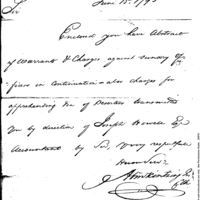 June 15. 1795
Sir
Enclosed you have Abstract
of Warrants & Charges against sundry Of-
ficers in continuation also charges for
apprehending &c of Deserters transmitted
you by direction of Joseph Howell Esq
Accountant by Sir, Very respectfull
Hum Serv